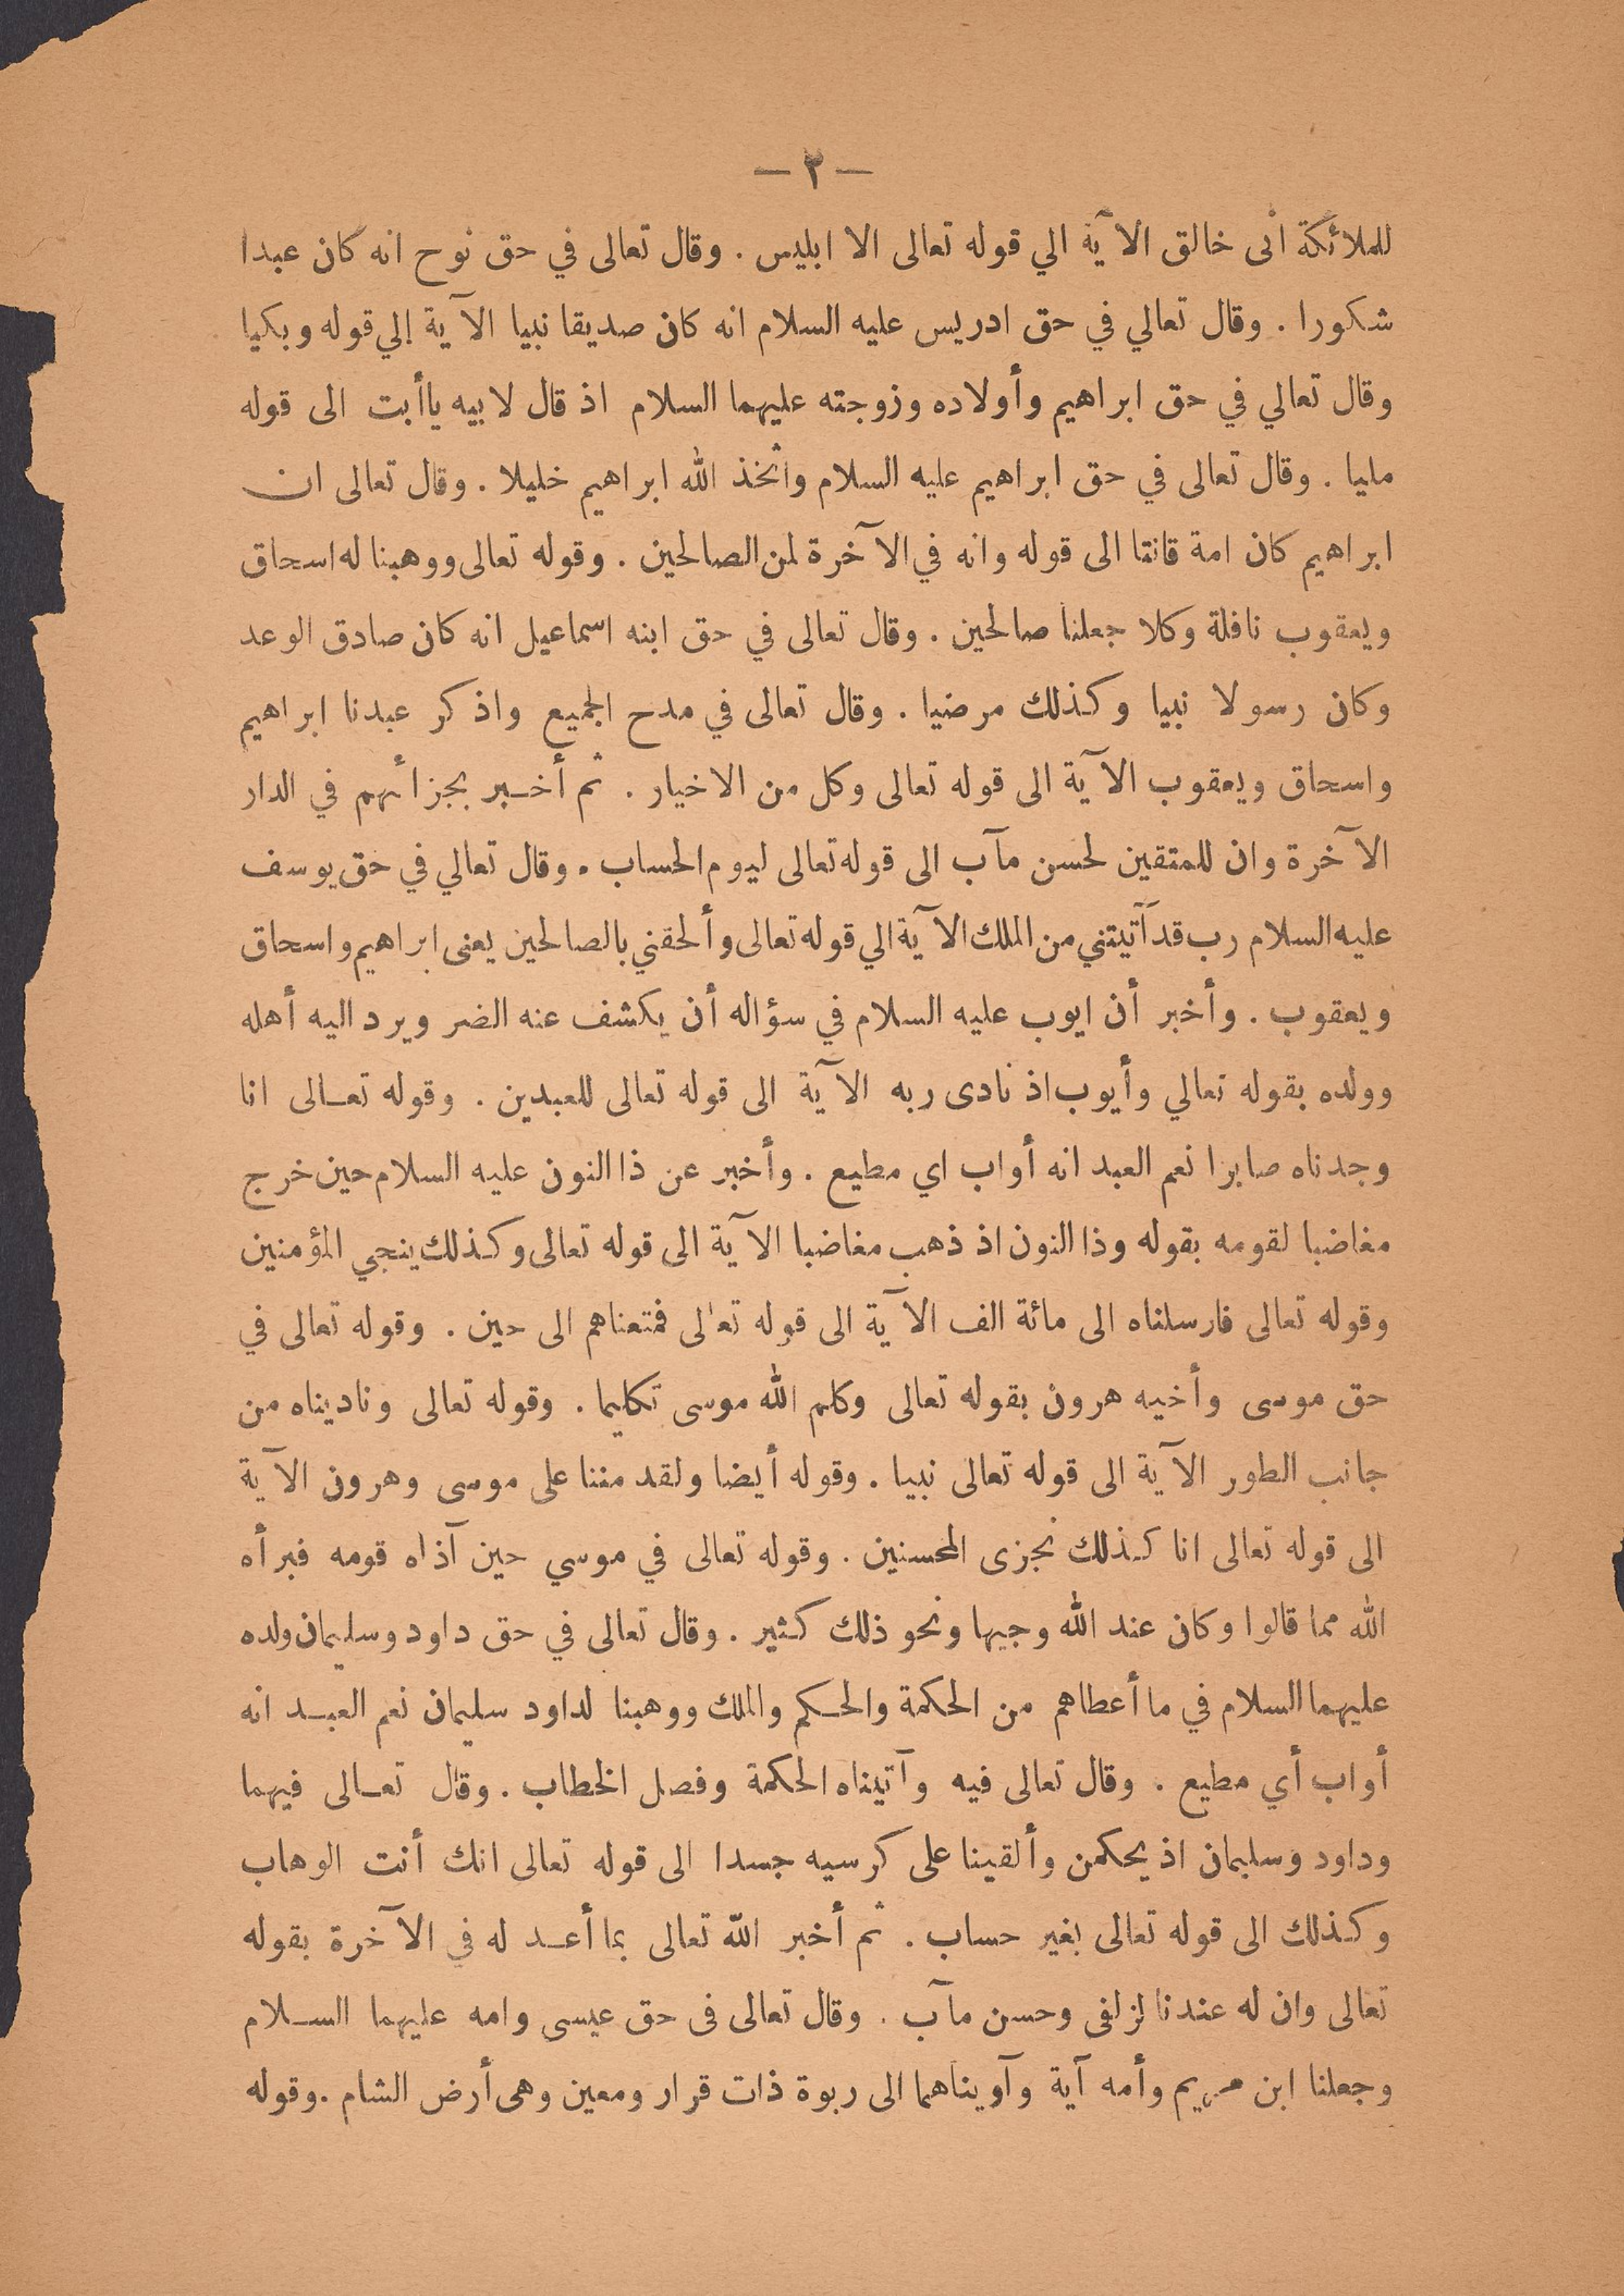 — ٣ —
للملائكة انى خالق الآية الي قوله تعالى الا ابليس . وقال تعالى في حق نوح انه كان عبدا
شكورا . وقال تعالي في حق ادريس عليه السلام انه كان صديقا نبيا الآية إلي قوله وبكيا
وقال تعالي في حق ابراهيم وأولاده وزوجته عليهما السلام اذ قال لابيه ياأبت الى قوله
مليا . وقال تعالى في حق ابراهيم عليه السلام واتخذ الله ابراهيم خليلا . وقال تعالى ان
ابراهيم كان امة قانتا الى قوله وانه في الآخرة لمن الصالحين . وقوله تعالى ووهبنا له اسحاق
ويعقوب نافلة وكلا جعلنا صالحين . وقال تعالى في حق ابنه اسماعيل انه كان صادق الوعد
وكان رسولا نبيا وكذلك مرضيا . وقال تعالى في مدح الجميع واذكر عبدنا ابراهيم
واسحاق ويعقوب الآية الى قوله تعالى وكل من الاخيار . ثم أخبر بجزائهم في الدار
الآخرة وان للمتقين لحسن مآب الى قوله تعالى ليوم الحساب . وقال تعالي في حق يوسف
عليه السلام رب قد آتيتني من الملك الآية الي قوله تعالى وألحقني بالصالحين يعنى ابراهيم واسحاق
ويعقوب . وأخبر أن ايوب عليه السلام في سؤاله أن يكشف عنه الضر ويرد اليه أهله
وولده بقوله تعالي وأيوب اذ نادى ربه الآية الى قوله تعالى للعبدين . وقوله تعالى انا
وجدناه صابرا نعم العبد انه أواب اي مطيع . وأخبر عن ذا النون عليه السلام حين خرج
مغاضبا لقومه بقوله وذا النون اذ ذهب مغاضبا الآية الى قوله تعالى وكذلك ينجي المؤمنين
وقوله تعالى فارسلناه الى مائة الف الآية الى قوله تعالى فمتعناهم الى حين . وقوله تعالى في
حق موسى وأخيه هرون بقوله تعالى وكلم الله موسى تكليما . وقوله تعالى وناديناه من
جانب الطور الآية الى قوله تعالى نبيا . وقوله أيضا ولقد مننا على موسى وهرون الآية
الى قوله تعالى انا كذلك نجزى المحسنين . وقوله تعالى في موسي حين آذاه قومه فبرأه
الله مما قالوا وكان عند الله وجيها ونحو ذلك كثير . وقال تعالى في حق داود وسليمان ولده
عليهما السلام في ما أعطاهم من الحكمة والحكم والملك ووهبنا لداود سليمان نعم العبد انه
أواب أي مطيع . وقال تعالى فيه وآتيناه الحكمة وفصل الخطاب . وقال تعالى فيهما
وداود وسليمان اذ يحكمن وألقينا على كرسيه جسدا الى قوله تعالى انك أنت الوهاب
وكذلك الى قوله تعالى بغير حساب . ثم أخبر الله تعالى بما أعد له في الآخرة بقوله
تعالى وان له عندنا لزلفى وحسن مآب . وقال تعالى فى حق عيسى وامه عليهما السلام
وجعلنا ابن مريم وأمه آية وآويناهما الى ربوة ذات قرار ومعين وهى أرض الشام . وقوله